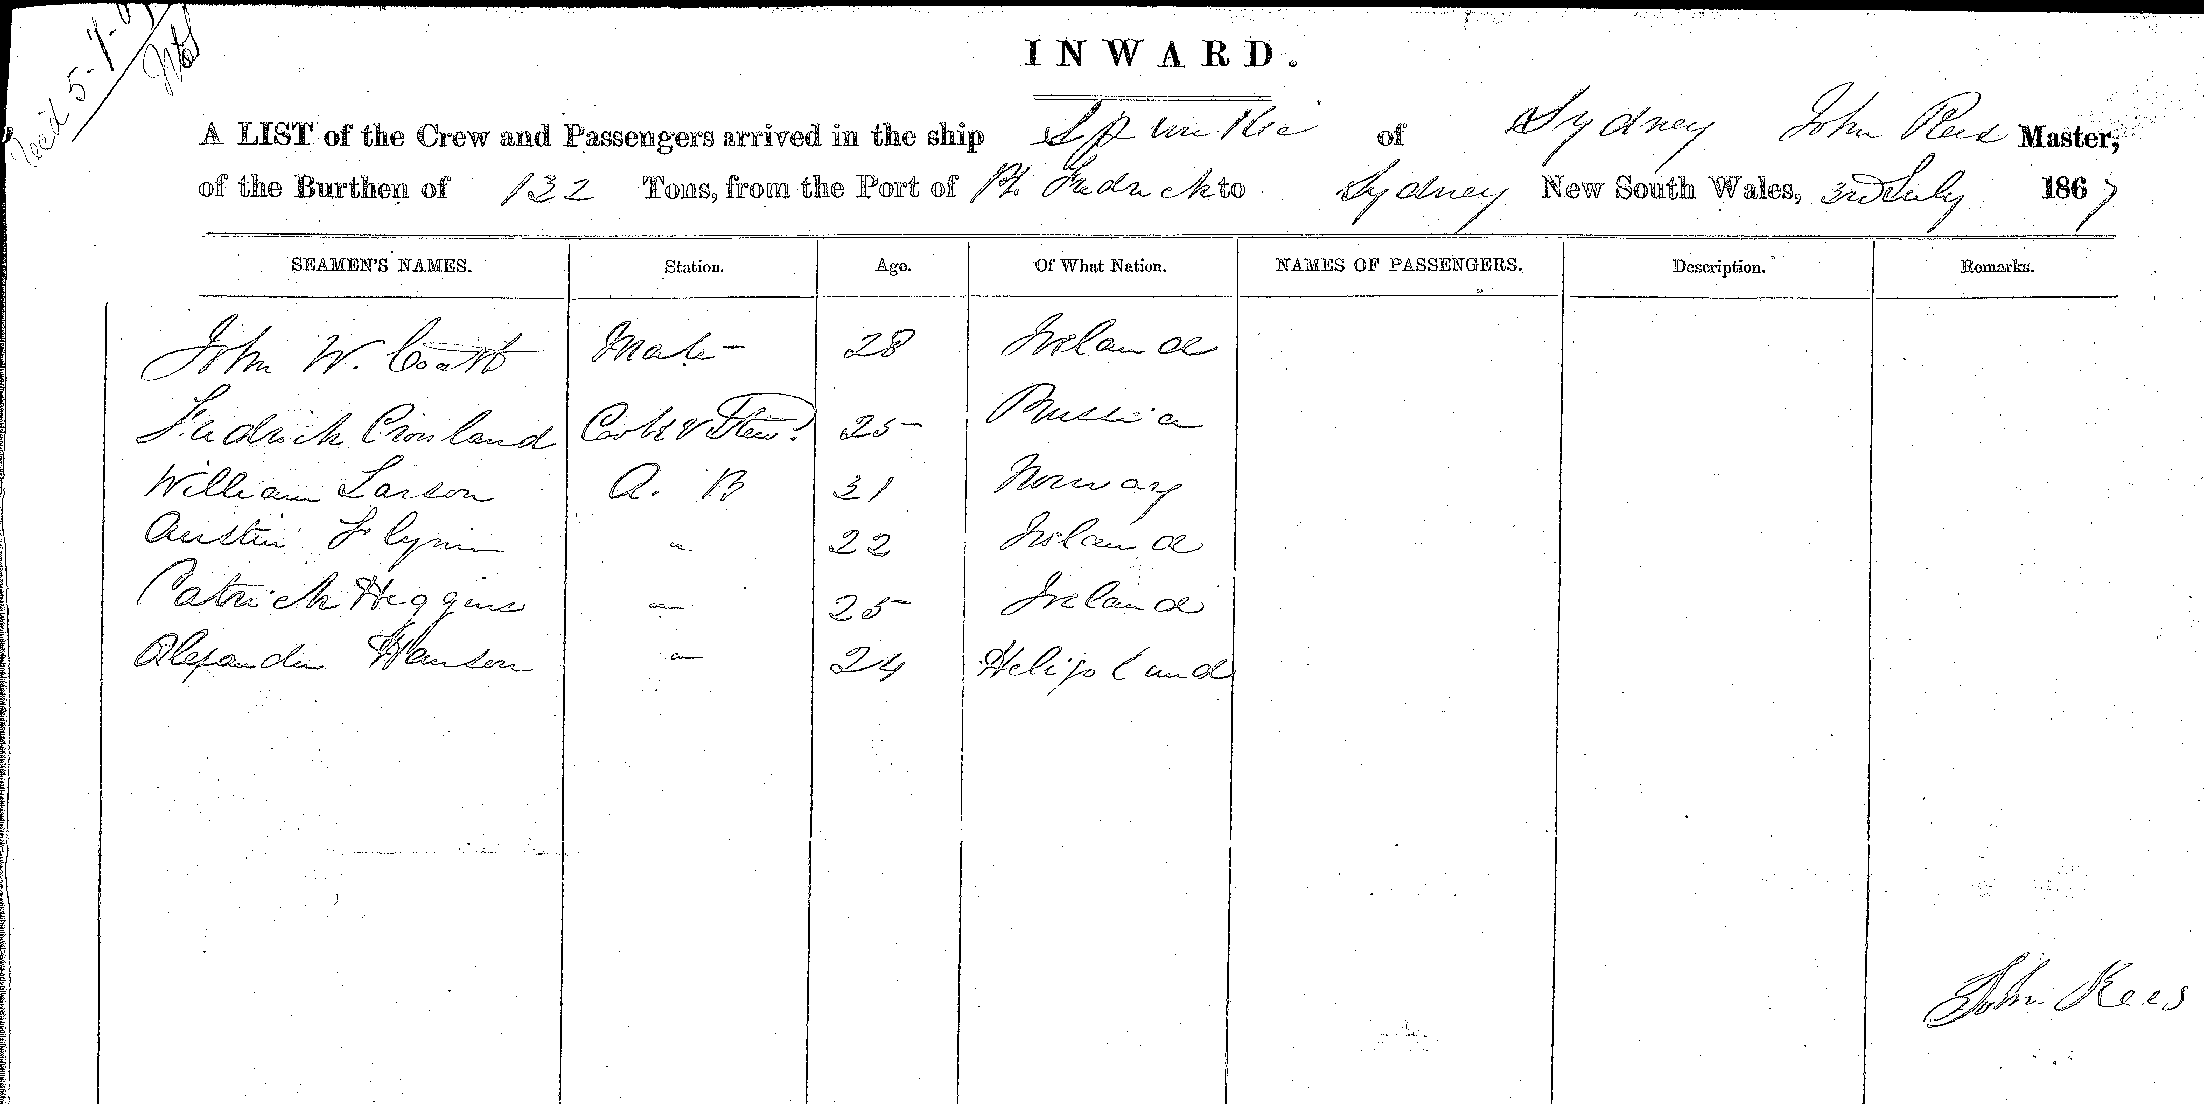 Rec'd 5-7-
INWARD.
A LIST of the Crew and Passengers arrived in the ship Spunkie of Sydney John Rees Master,
of the Burthen of 132 Tons, from the Port of Pt. Fredrick to Sydney New South Wales, 3rd July 1867
SEAMEN'S NAMES. Station. Age. Of What Nation. NAMES OF PASSENGERS. Description. Remarks.
John W. Mate 28 Ireland
Fredrick Crouland Cook & Stew. 25 Prussia
William Larson A. B 31 Norway
Austin Flynn " 22 Ireland
Patrick Heggins " 25 Ireland
Alexander Hanson " 24 Heligoland
John Rees